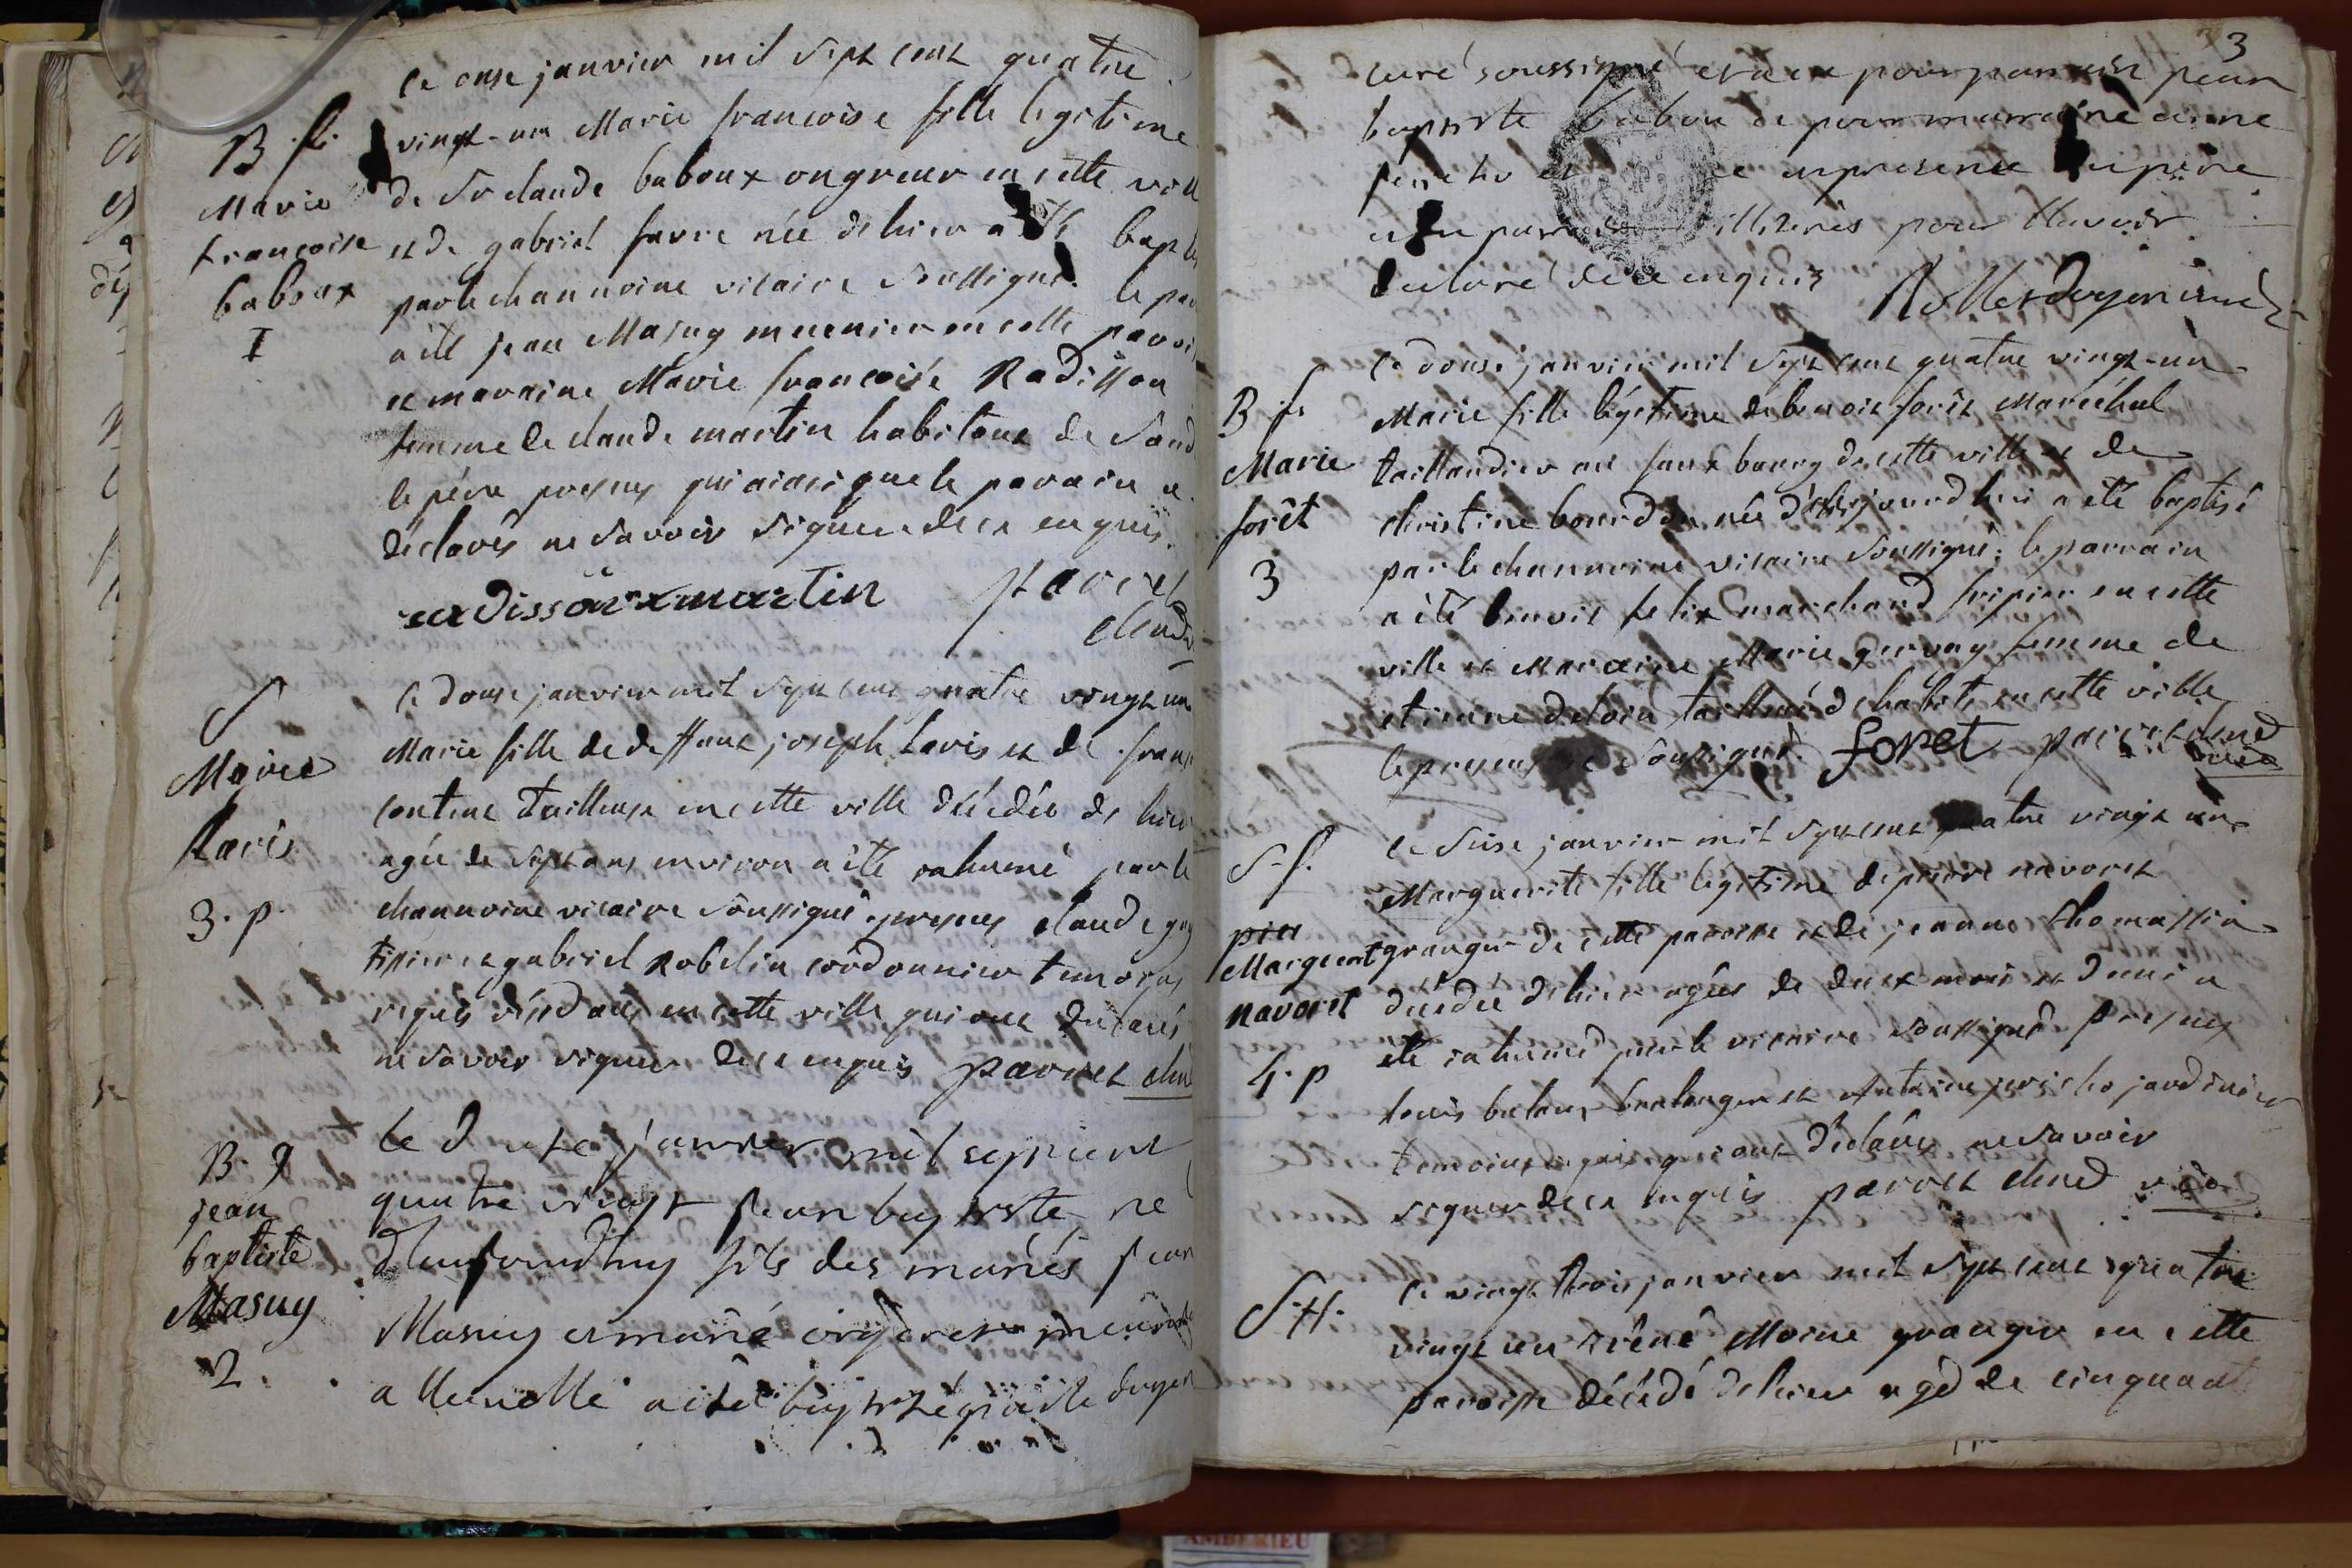 B. f.
Marie
francoise
baboux
I
le onse janvier mil sept cent quatre
vingt-un Marie francoise fille legitime
de Sr claude baboux ongreur en cette vill
et de gabriel favre née de hier a été bapti
par le channoine vicaire soussigné. le par
a été jean Masuy meunier en cette parois
et maraine Marie francoise Radisson
femme de claude martin habitant de
le pére presens qui ainsi que le parain a
déclarés ne savoir signer de ce enquis.
radisson x martin pavret
chne
S
Marie
Lavis
3. p.
le douse janvier mil sept cent quatre vingt un
Marie fille de deffunt joseph Lavis et de fran
tailleuse en cette ville décédée de hier
agée de sept ans environ a été inhumé par le
channoine vicaire soussigné. presens claude guy
fripier et gabriel Robelin cordonnier temoins
requis résidans en cette ville qui ont declarés
ne savoir signer de ce enquis pavret chne
B. g
jean
baptiste
Masuy
2.
le douse janvier mil sept cent
quatre vingt jean baptiste ne
d'aujourdhuy fils des mariés jean
Masuy et marie meunier
a été baptisé par le doyen
3
curé soussigné et a eu pour parrain jean
baptiste babou et pour marraine anne
en presence du pere
illiterés pour l'avoir
declaré de ce enquis doyen curé
B. f.
Marie
forêt
3
le douse janvier mil sept cent quatre vingt-un
Marie fille légitime de benoit forêt Maréchal
taillandier au faux bourg de cette ville et de
christine bourdon née d'aujourd hui a été baptisé
par le channoine vicaire soussigné. le parrain
a été benoit felix marchand fripier en cette
ville et Maraine Marie gervay femme de
etienne deloin taillandd habite en cette ville
le pere soussigné. foret pavret chned
vice
S. f.
Marguerit
navoret
4. p
le seise janvier mil sept cent quatre vingt un
Marguerite fille légitime de pierre navoret
granger de cette paroisse et de jeanne thomassin
décédée de hier agée de deux mois et demi a
été inhumé par le vicaire soussigné presens
Louis boulanger et Antoine jericho jardinier
temoins requis qui ont déclarés ne savoir
signer de ce enquis pavret chned vice
S. H.
le vingt trois janvier mil sept cent quatre
vingt un rêné Moine granger en cette
paroisse décédé de hier agé de cinquante
AMBERIEU